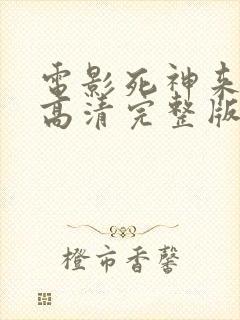 电影死神来
高清完整版
橙市香馨